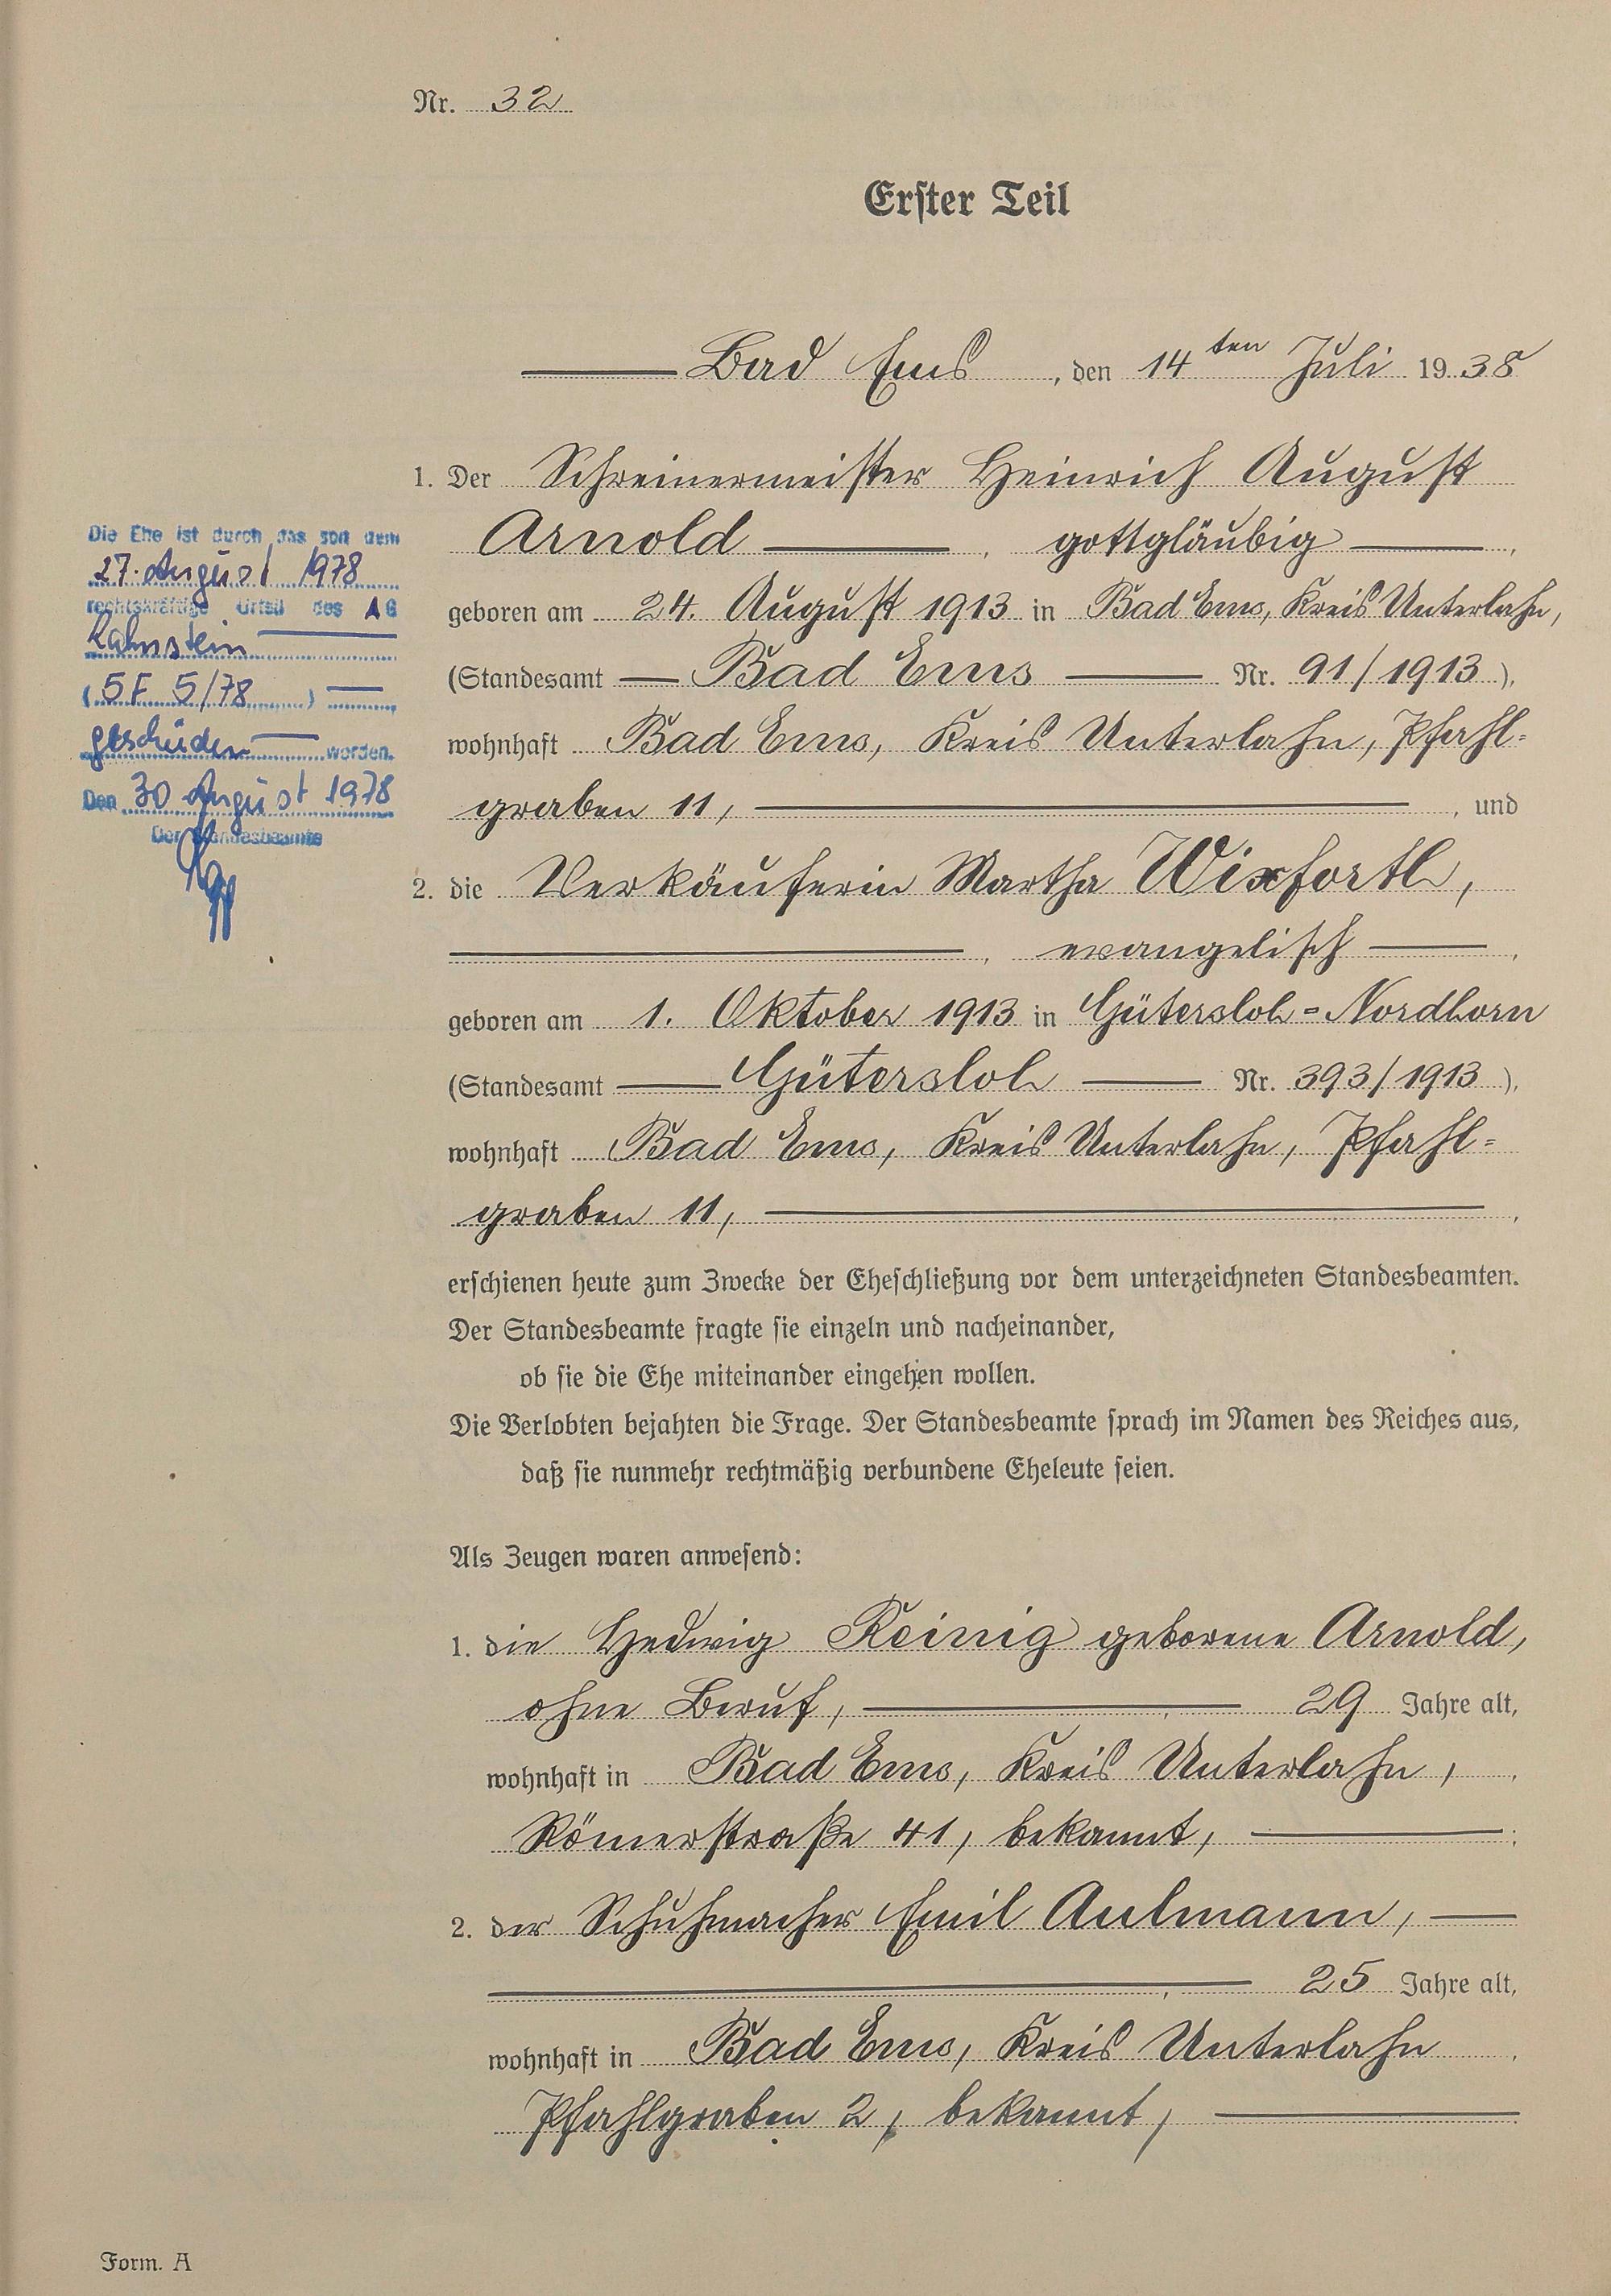 Nr. 32
Erster Teil
Bad Ems, den 14ten Juli 1938
1. Der Schreinermeister Heinrich August
Arnold, gottgläubig,
geboren am 24. August 1913 in Bad Ems, Kreis Unterlahn,
(Standesamt Bad Ems Nr. 91/1913),
wohnhaft Bad Ems, Kreis Unterlahn, Pfahl-
graben 11,, und
2. die Verkäuferin Martha Wixforth,
, evangelisch,
geboren am 1. Oktober 1913 in Gütersloh-Nordhorn
(Standesamt Gütersloh Nr. 393/1913),
wohnhaft Bad Ems, Kreis Unterlahn, Pfahl-
graben 11,,
erschienen heute zum Zwecke der Eheschließung vor dem unterzeichneten Standesbeamten.
Der Standesbeamte fragte sie einzeln und nacheinander,
ob sie die Ehe miteinander eingehen wollen.
Die Verlobten bejahten die Frage. Der Standesbeamte sprach im Namen des Reiches aus,
daß sie nunmehr rechtmäßig verbundene Eheleute seien.
Als Zeugen waren anwesend:
1. die Hedwig Reinig geborene Arnold,
ohne Beruf,, 29 Jahre alt,
wohnhaft in Bad Ems, Kreis Unterlahn,,
Römerstraße 41, bekannt,;
2. der Schuhmacher Emil Aulmann,
, 25 Jahre alt,
wohnhaft in Bad Ems, Kreis Unterlahn,
Pfahlgraben 2, bekannt,
Die Ehe ist durch das seit dem
27. August 1978
rechtskräftige Urteil des AG
Lahnstein
(5 F 5/78)
geschieden worden.
Den 30 August 1978
Der Standesbeamte
Form. A